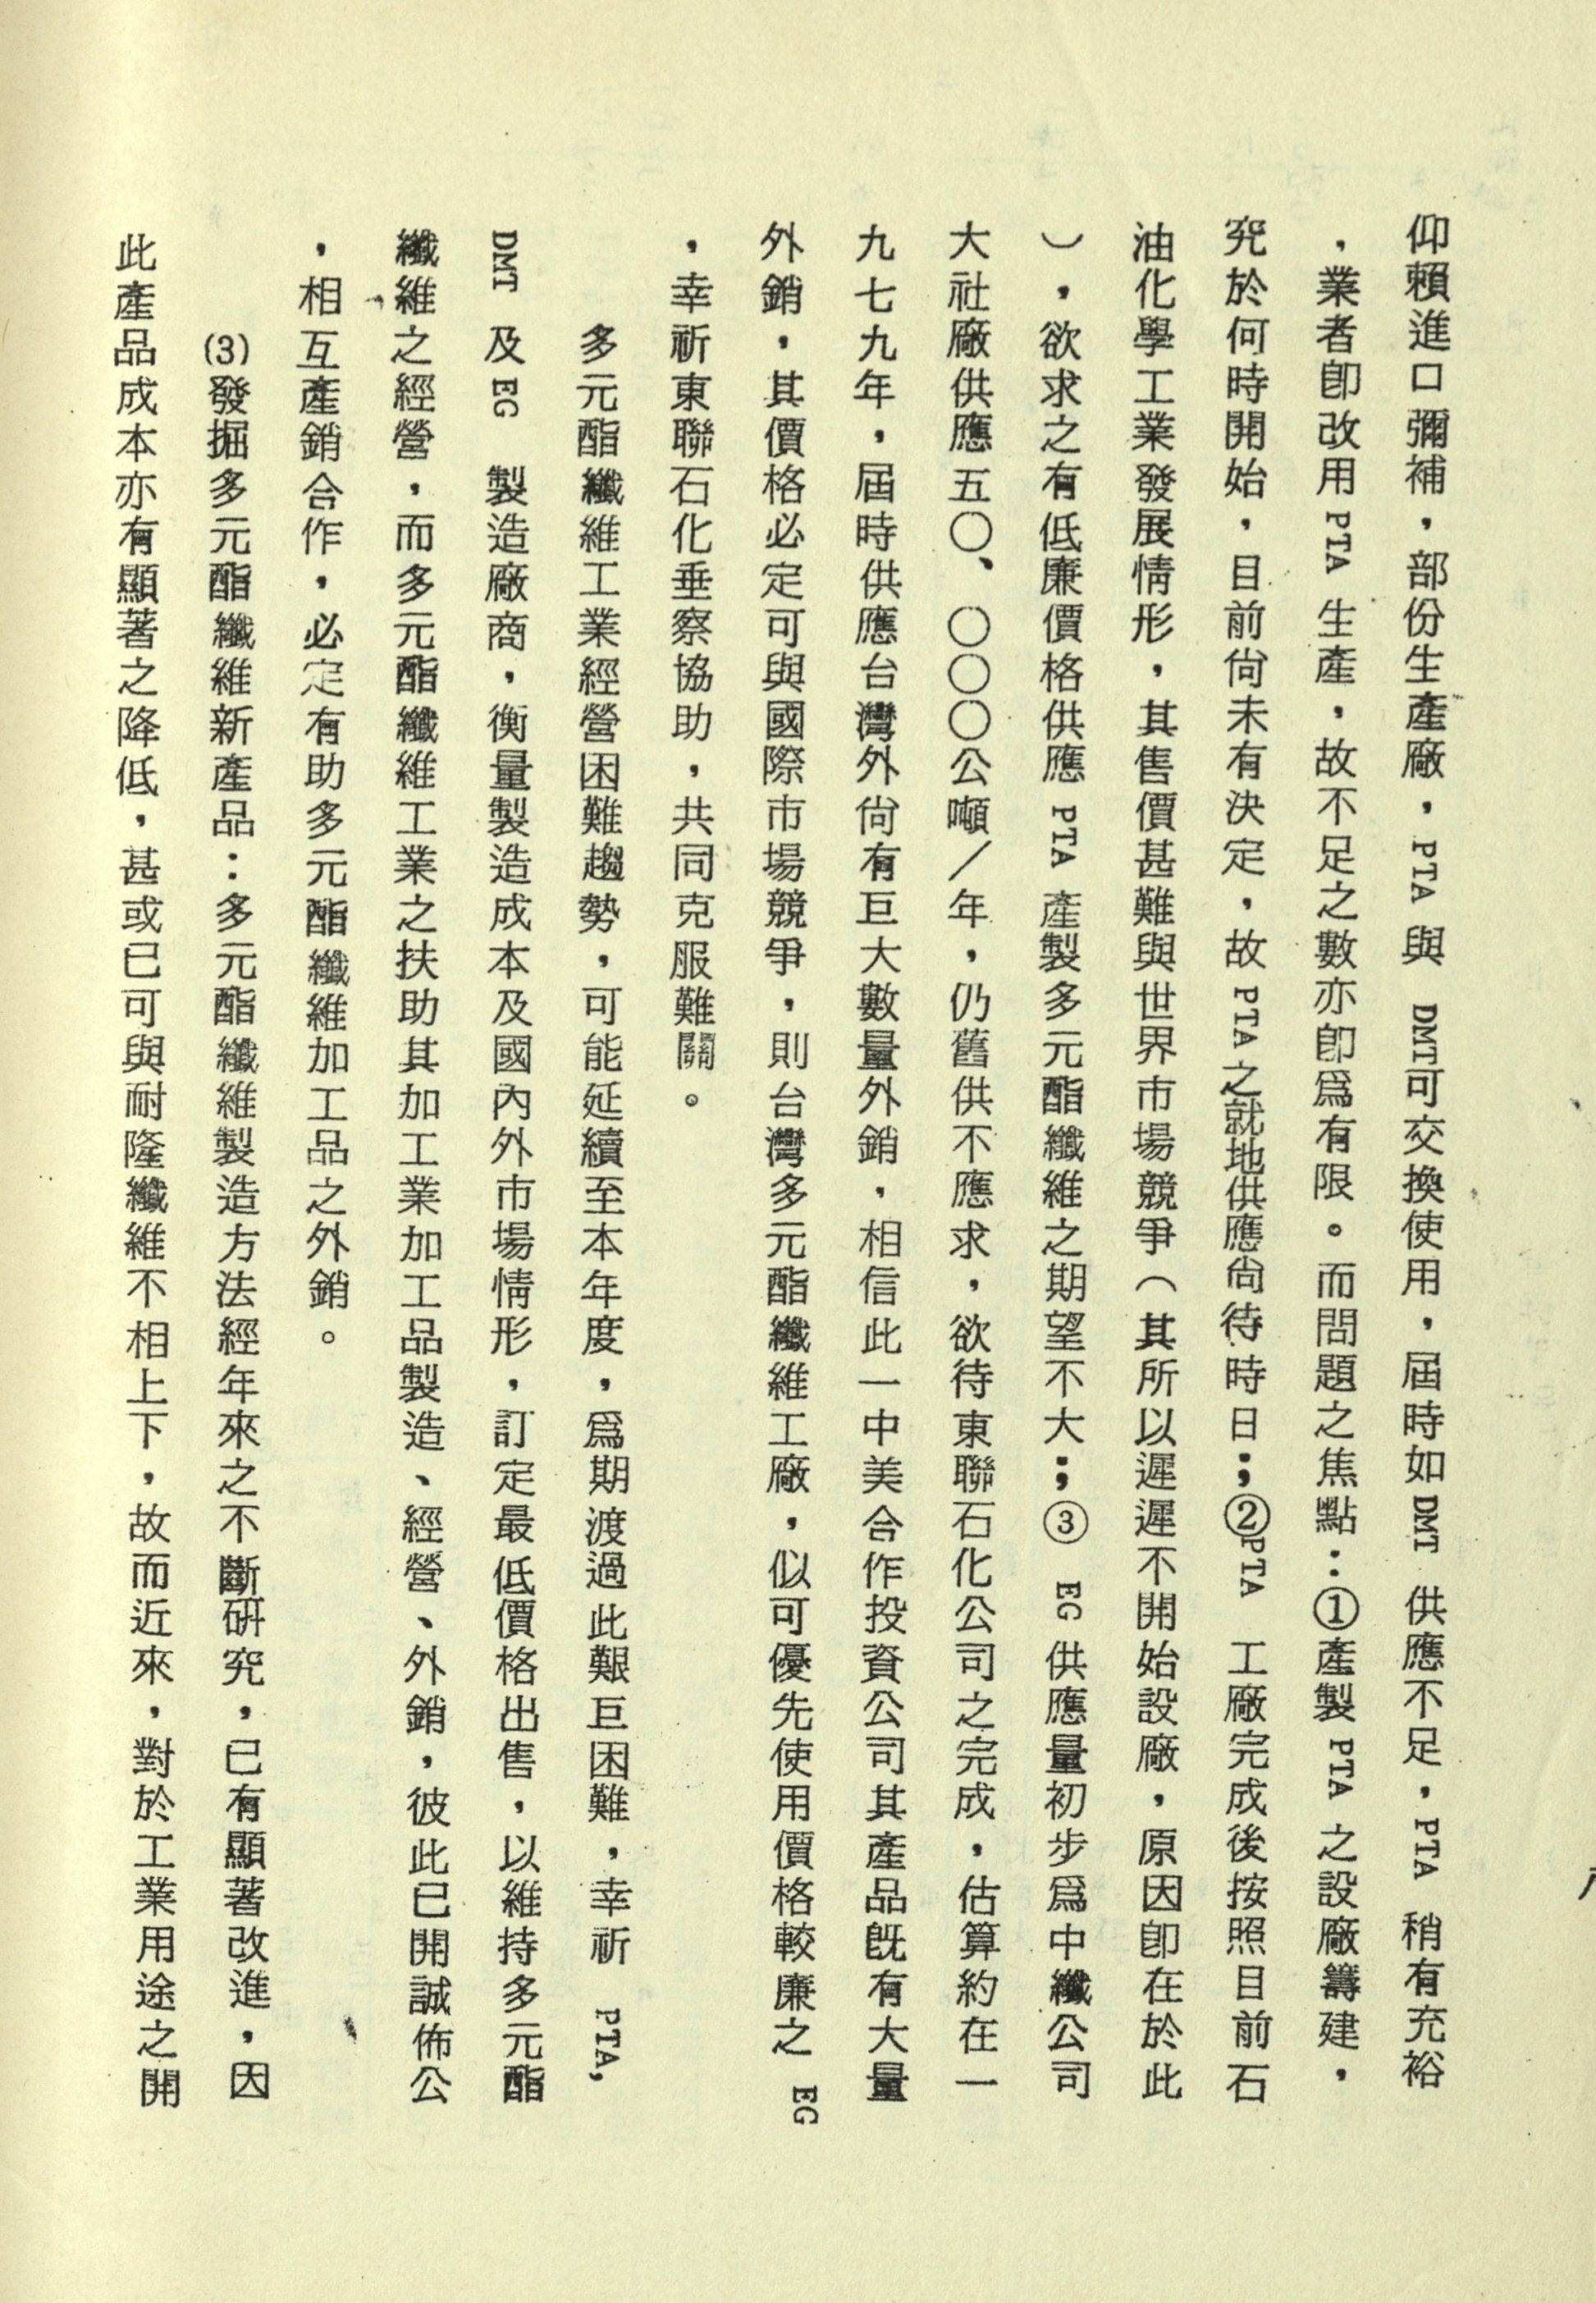 仰賴進口彌補，部份生產廠，PTA 與 DMT可交換使用，屆時如DMT 供應不足，PTA 稍有充裕
，業者卽改用 PTA 生產，故不足之數亦卽爲有限。而問題之焦點：①產製 PTA 之設廠籌建，
究於何時開始，目前尙未有決定，故 PTA之就地供應尙待時日；②PTA 工廠完成後按照目前石
油化學工業發展情形，其售價甚難與世界市場競爭（其所以遲遲不開始設廠，原因卽在於此
），欲求之有低廉價格供應 PTA 產製多元酯纖維之期望不大；③ EG 供應量初步爲中纖公司
大社廠供應五〇、〇〇〇公噸／年，仍舊供不應求，欲待東聯石化公司之完成，估算約在一
九七九年，屆時供應台灣外尙有巨大數量外銷，相信此一中美合作投資公司其產品旣有大量
外銷，其價格必定可與國際市場競爭，則台灣多元酯纖維工廠，似可優先使用價格較廉之 EG
，幸祈東聯石化垂察協助，共同克服難關。
多元酯纖維工業經營困難趨勢，可能延續至本年度，爲期渡過此艱巨困難，幸祈 PTA,
DMT 及 EG 製造廠商，衡量製造成本及國內外市場情形，訂定最低價格出售，以維持多元酯
纖維之經營，而多元酯纖維工業之扶助其加工業加工品製造、經營、外銷，彼此已開誠佈公
，相互產銷合作，必定有助多元酯纖維加工品之外銷。
(3)發掘多元酯纖維新產品：多元酯纖維製造方法經年來之不斷研究，已有顯著改進，因
此產品成本亦有顯著之降低，甚或已可與耐隆纖維不相上下，故而近來，對於工業用途之開